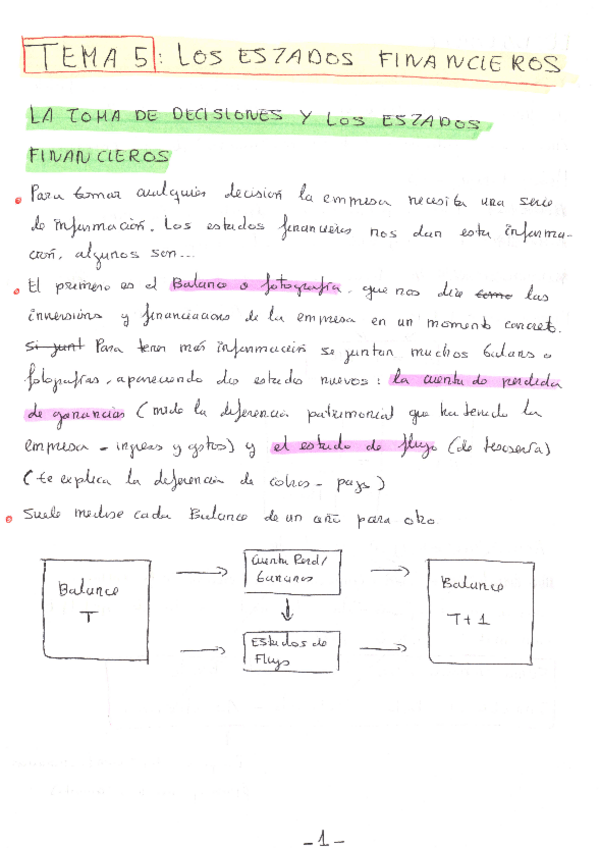 TEMA 5: LOS ESTADOS FINANCIEROS
LA TOMA DE DECISIONES Y LOS ESTADOS
FINANCIEROS
Para tomar cualquier decisión la empresa necesita una serie
de información. Los estados financieros nos dan esta informa-
ción, algunos son...
El primero es el Balance o fotografía, que nos dice como las
inversiones y financiaciones de la empresa en un momento concreto.
Si junt Para tener más información se juntan muchos balans o
fotografías, apareciendo dos estados nuevos: la cuenta de perdida
de ganancias (mide la diferencia patrimonial que ha tenido la
empresa - ingresos y gastos) y el estado de flujo (de tesorería)
(te explica la diferencia de cobros - pagos)
Suele medirse cada Balance de un año para otro
Balance
T
Cuenta Perd/
Ganancias
Estados de
Flujo
Balance
T+1
-1-